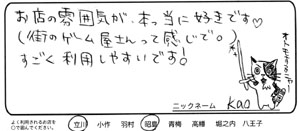 お店の雰囲気が、本当に好きです♡
(街のゲーム屋さんって感じで。)
すごく利用しやすいです!
オトモニャー
ニックネーム kao
よく利用されるお店を
○で囲んでください。
立川 小作 羽村 昭島 青梅 高幡 堀之内 八王子